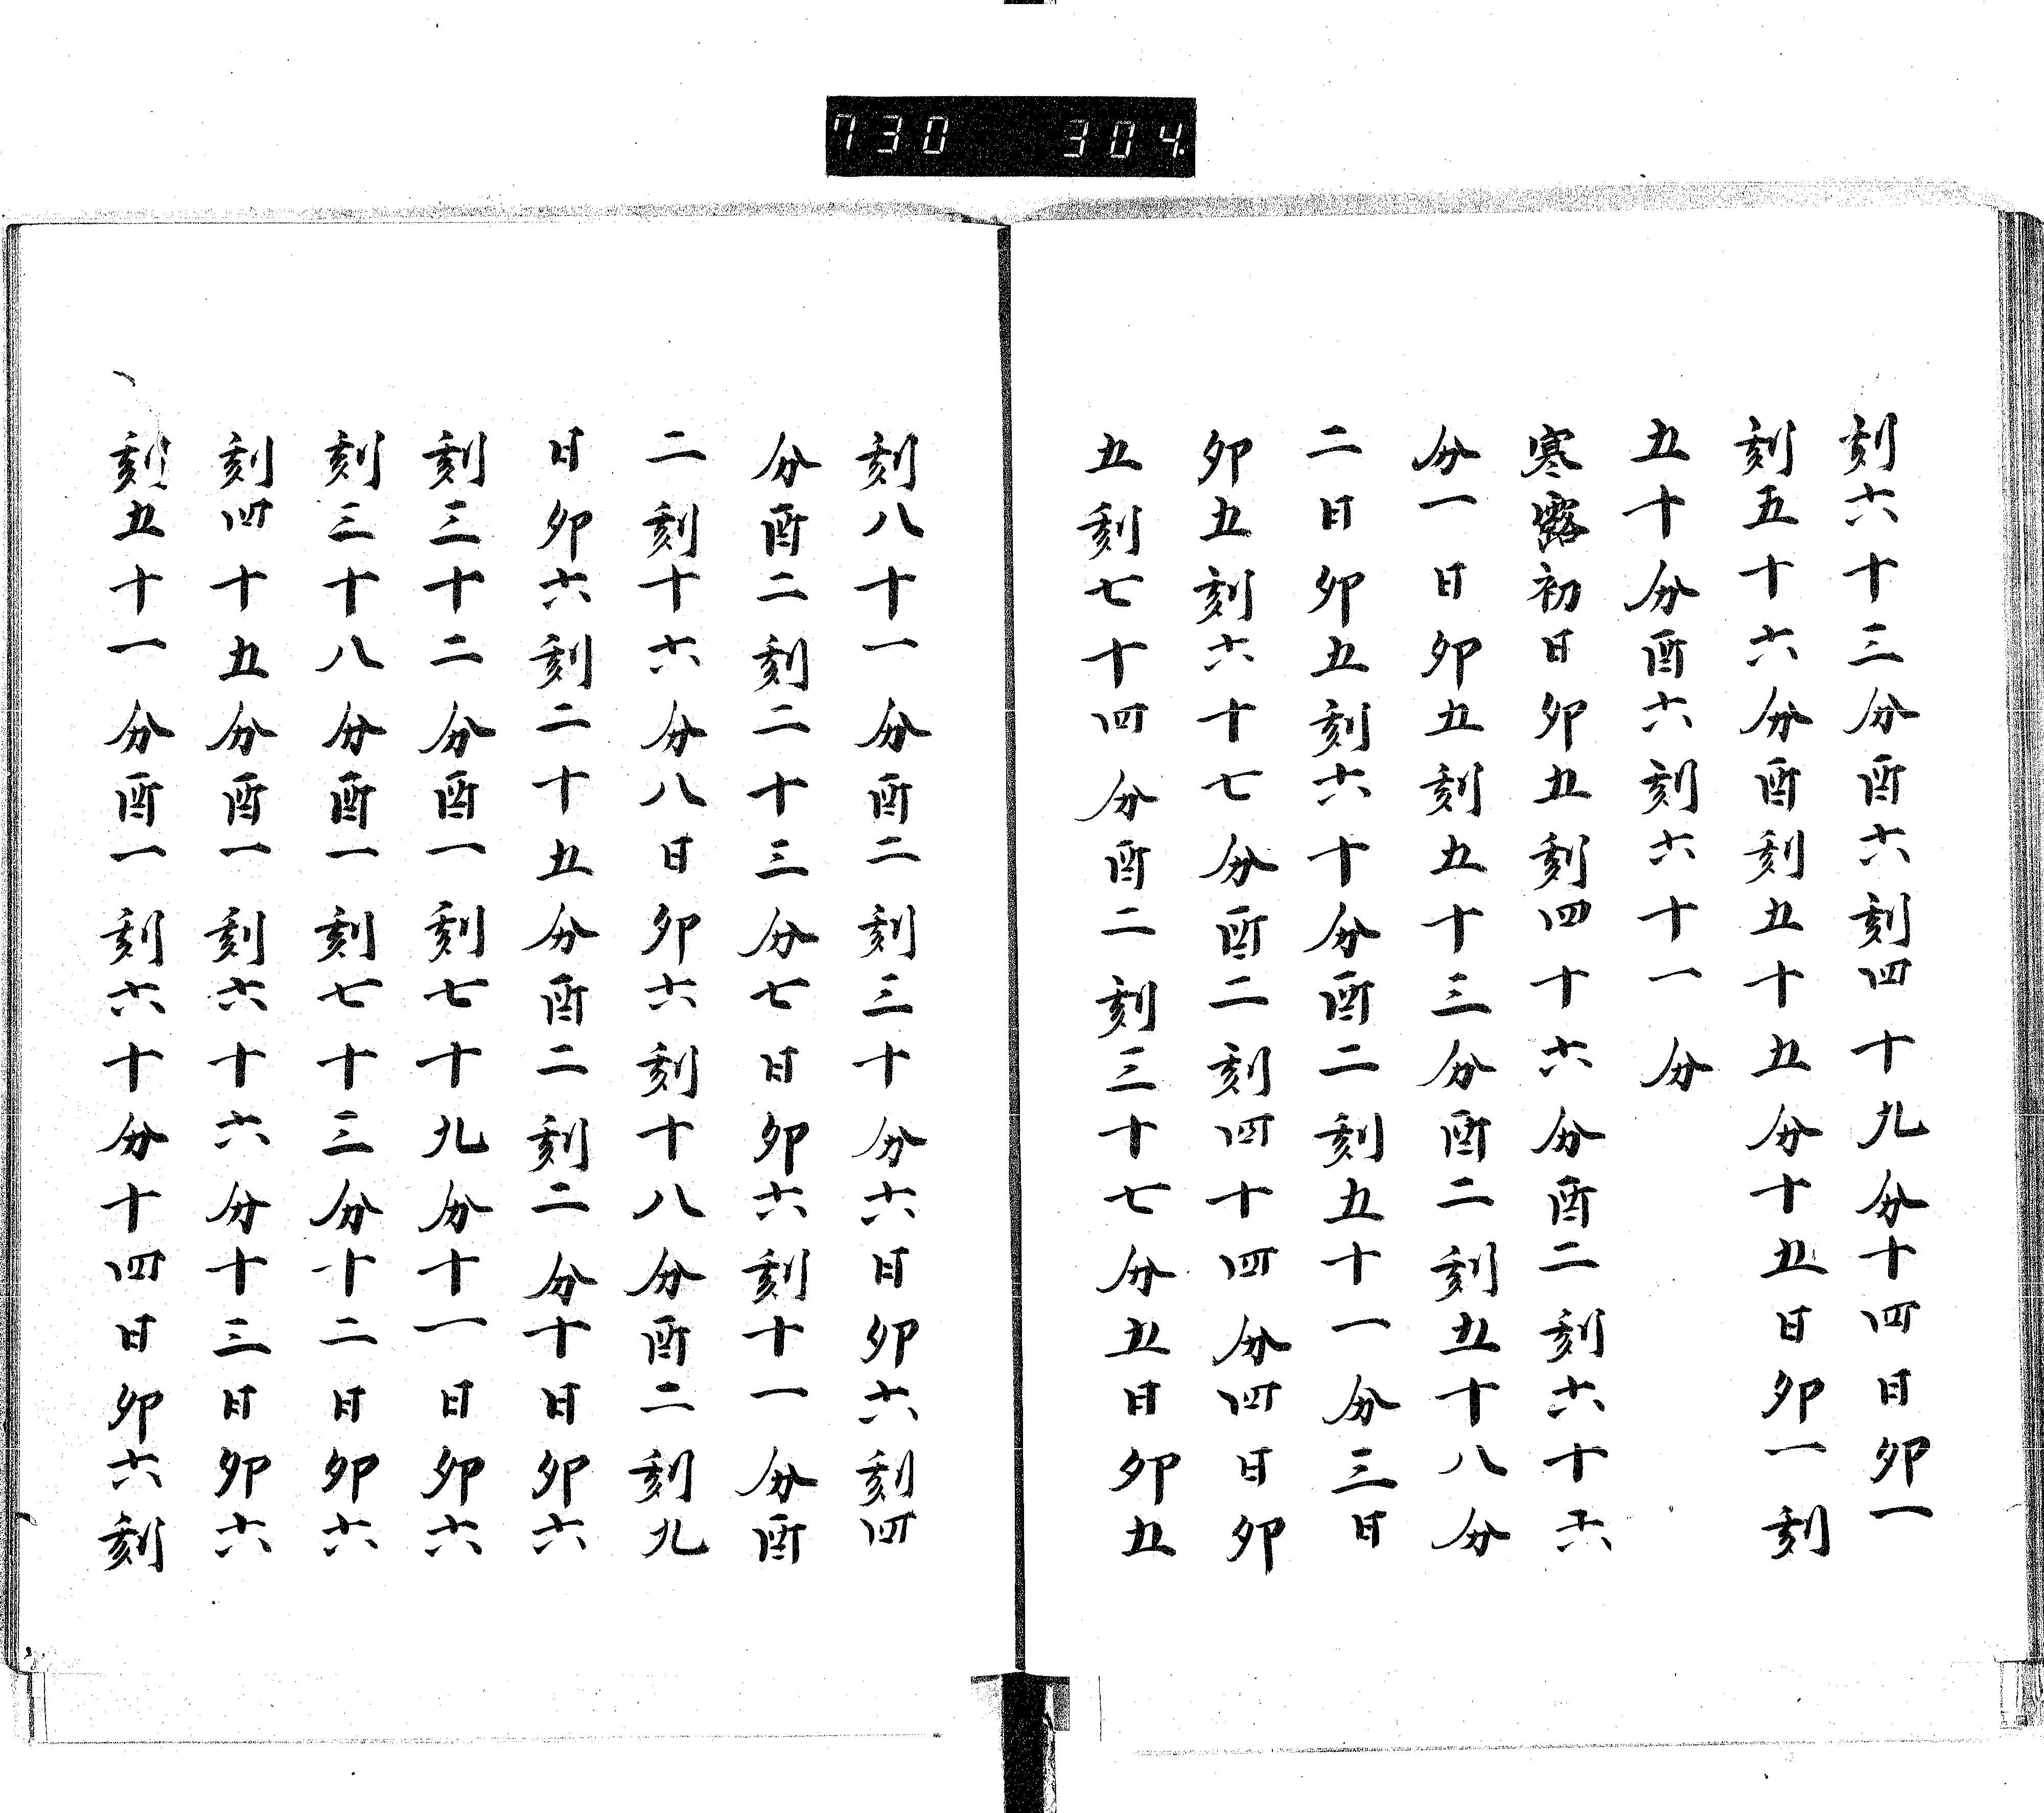 730 304
刻六十三分酉六刻四十九分十四日卯一
刻五十六分酉刻五十五分十五日卯一刻
五十分酉六刻六十一分
寒露初日卯五刻四十六分酉二刻六十六
分一日卯五刻五十三分酉二刻五十八分
二日卯五刻六十分酉二刻五十一分三日
卯五刻六十七分酉二刻四十四分四日卯
五刻七十四分酉二刻三十七分五日卯五
刻八十一分酉二刻三十分六日卯六刻四
分酉二刻二十三分七日卯六刻十一分酉
二刻十六分八日卯六刻十八分酉二刻九
日卯六刻二十五分酉二刻二分十日卯六
刻三十二分酉一刻七十九分十一日卯六
刻三十八分酉一刻七十三分十二日卯六
刻四十五分酉一刻六十六分十三日卯六
刻五十一分酉一刻六十分十四日卯六刻